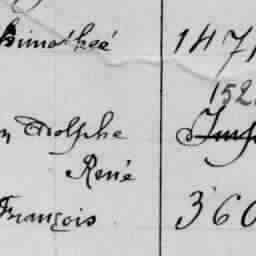 Thimothée 147
152
n Adolphe
René
François 360